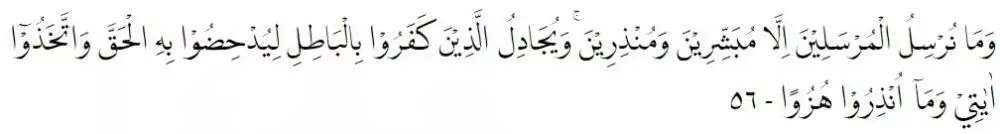 وَمَا نُرْسِلُ الْمُرْسَلِيْنَ اِلَّا مُبَشِّرِيْنَ وَمُنْذِرِيْنَۚ وَيُجَادِلُ الَّذِيْنَ كَفَرُوْا بِالْبَاطِلِ لِيُدْحِضُوْا بِهِ الْحَقَّ وَاتَّخَذُوْٓا
اٰيٰتِيْ وَمَآ اُنْذِرُوْا هُزُوًا - ٥٦